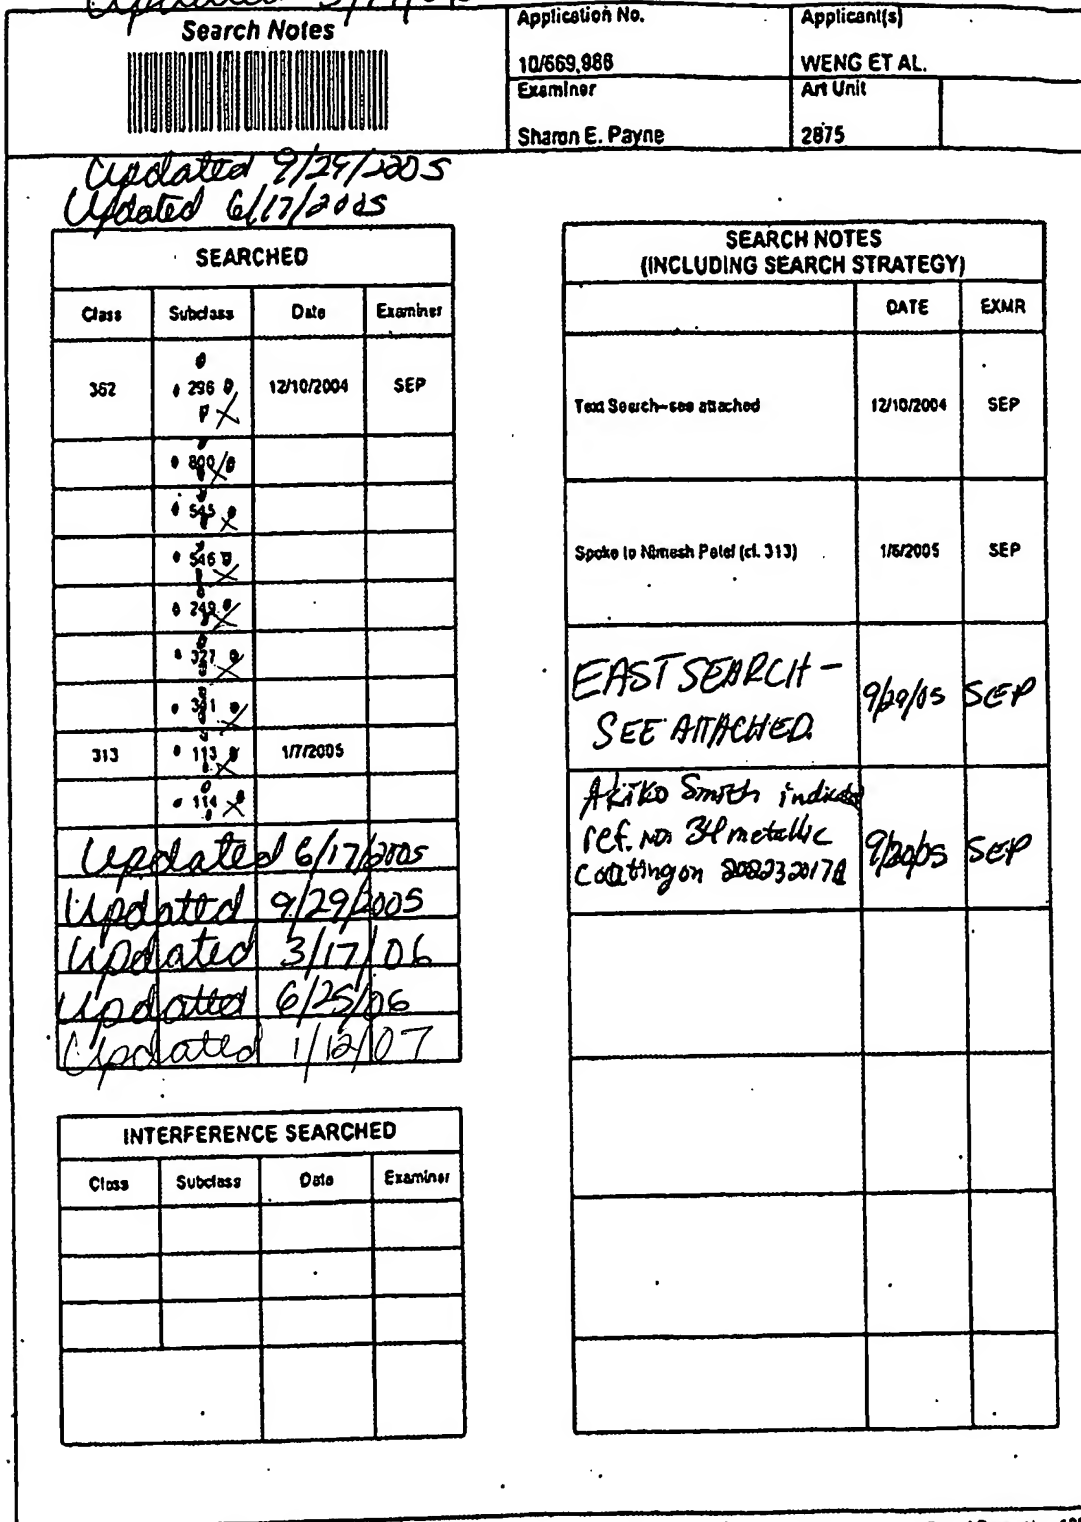 Updated 3/17/06
Search Notes
Application No.
Applicant(s)
10/669,986
WENG ET AL.
Examiner
Art Unit
Sharon E. Payne
2875
Updated 9/29/2005
Updated 6/17/2005
SEARCHED
Class Subclass Date Examiner
362 296 12/10/2004 SEP
800
545
546
249
327
113 1/7/2005
313
114
Updated 6/17/2005
Updated 9/29/2005
Updated 3/17/06
Updated 6/25/06
Updated 1/12/07
INTERFERENCE SEARCHED
Class Subclass Date Examiner
SEARCH NOTES
(INCLUDING SEARCH STRATEGY)
DATE EXMR
Text Search--see attached 12/10/2004 SEP
Spoke to Nimesh Patel (cl. 313) 1/6/2005 SEP
EAST SEARCH -
SEE ATTACHED. 9/29/05 SEP
Akiko Smith indicated
ref. no. 34 metallic
coating on SEP